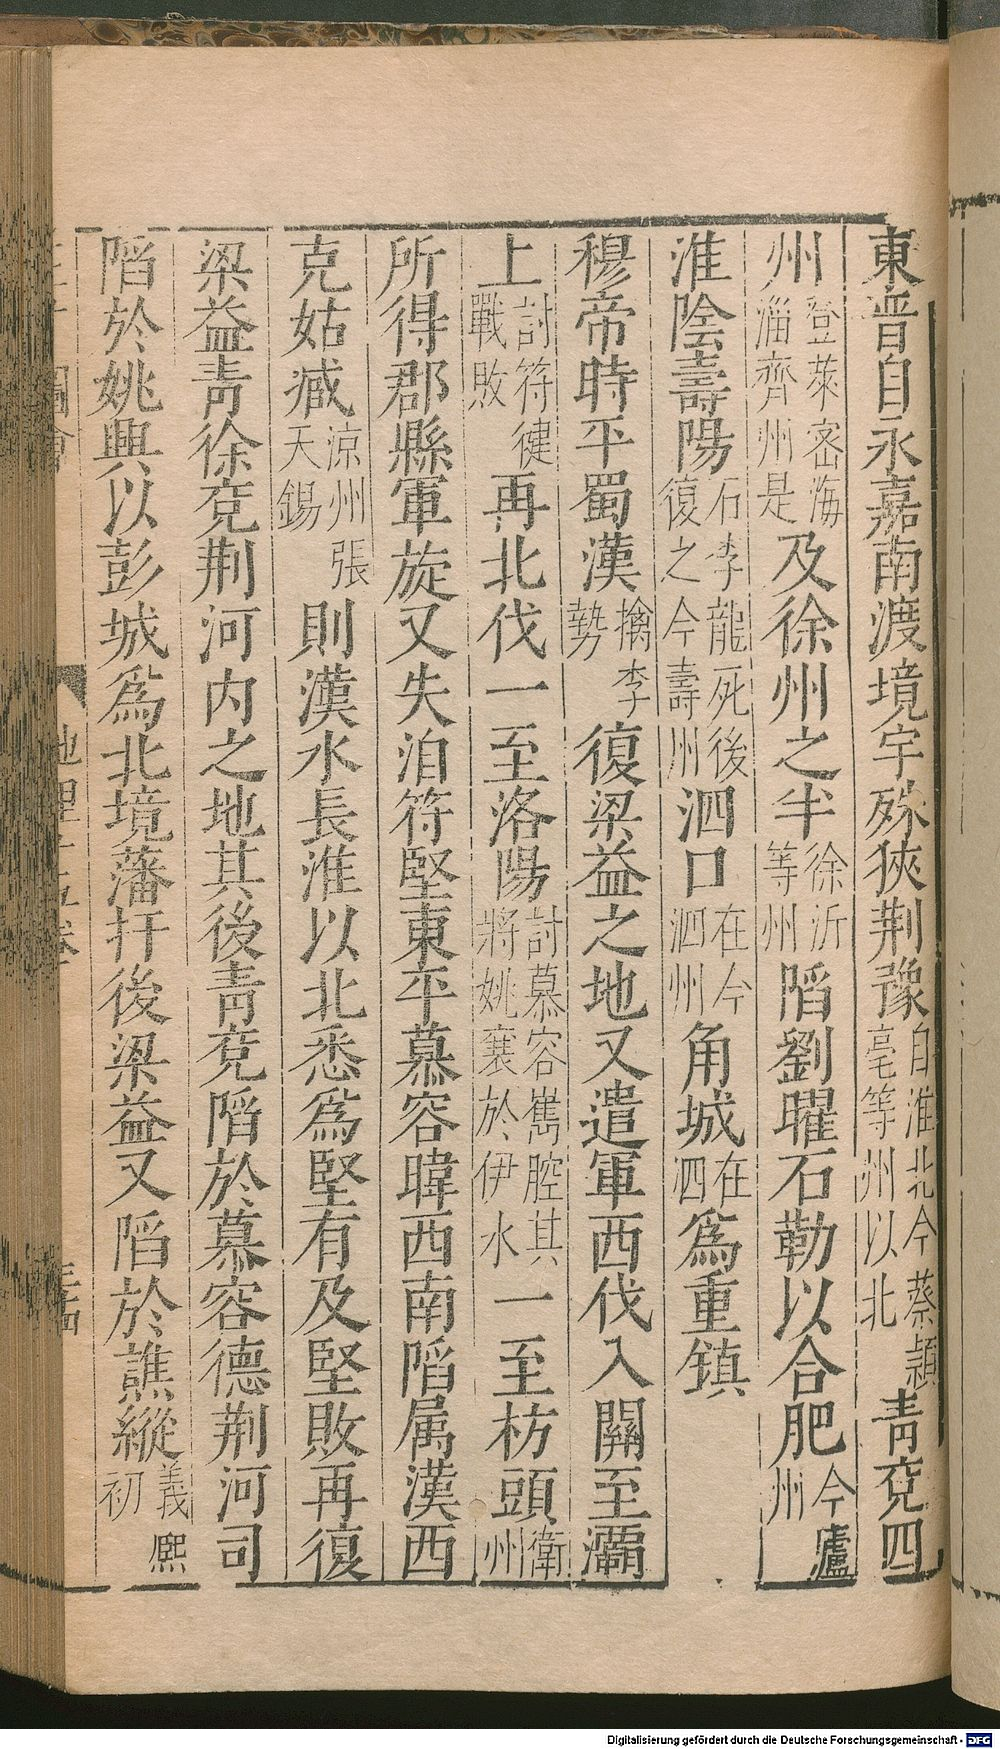 東晉自永嘉南渡境宇殊狹荆豫自淮北今蔡潁亳等州以北青兗四
州登萊密海淄齊州是及徐州之半徐沂等州陷劉曜石勒以合肥今廬州
淮陰壽陽石李龍死後復之今壽州泗口在今泗州角城在泗爲重鎮
穆帝時平蜀漢擒李勢復梁益之地又遣軍西伐入關至灞
上討符健戰敗再北伐一至洛陽討慕容雋腔其將姚襄於伊水一至枋頭衛州
所得郡縣軍旋又失洎符堅東平慕容暐西南陷属漢西
克姑臧涼州張天錫則漢水長淮以北悉爲堅有及堅敗再復
梁益青徐兗荆河內之地其後青兗陷於慕容德荆河司
陷於姚興以彭城爲北境藩扞後梁益又陷於譙縱義熙初
Digitalisierung gefördert durch die Deutsche Forschungsgemeinschaft - DFG